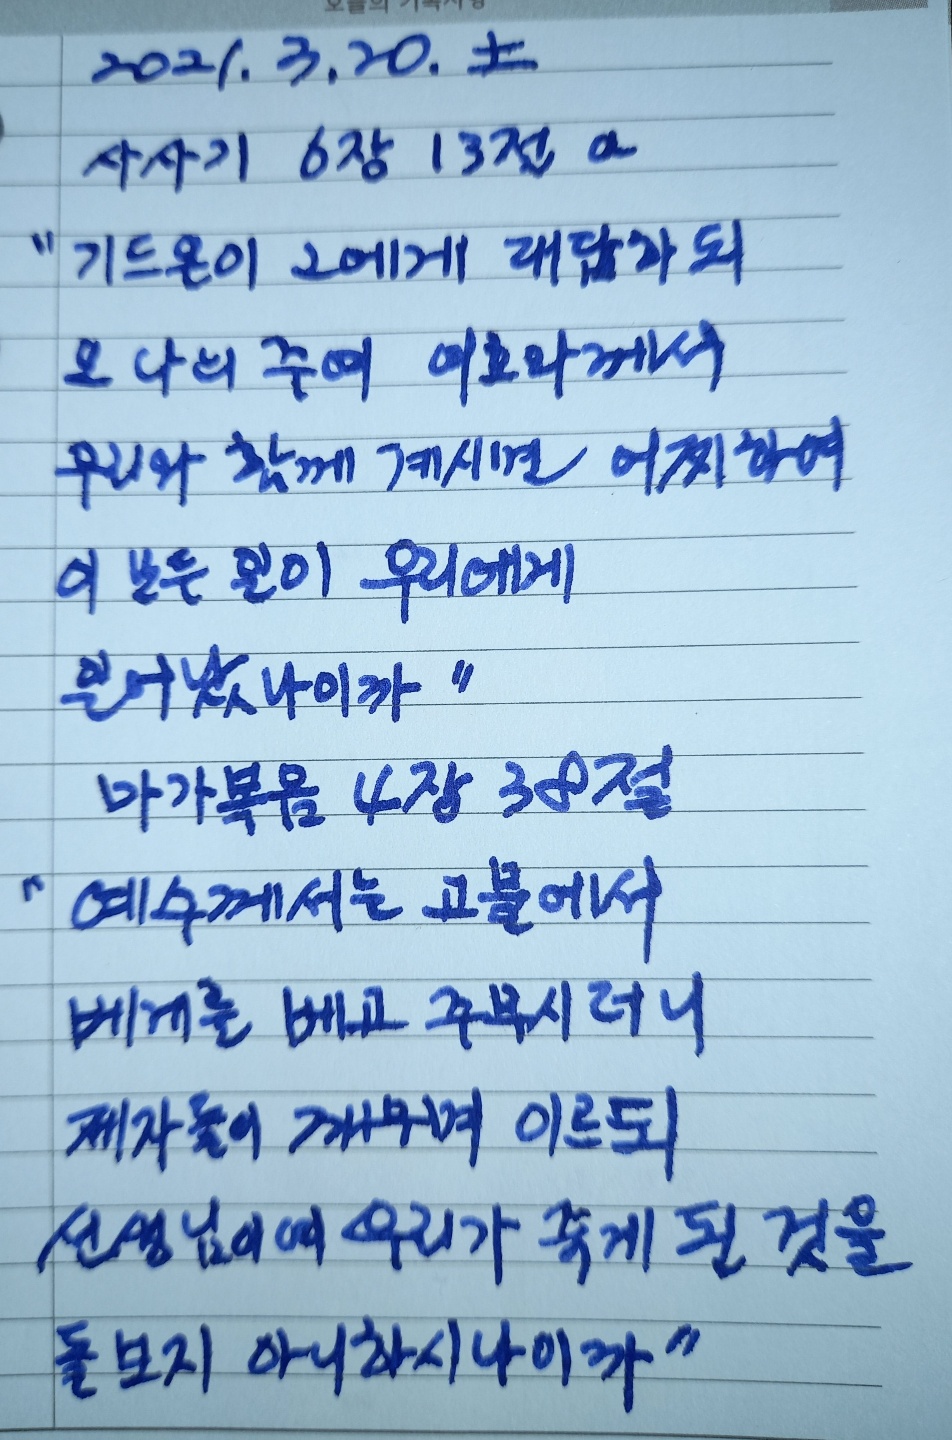 2021. 3. 20. 土
사사기 6장 13절 a
"기드온이 그에게 대답하되
오 나의 주여 여호와께서
우리와 함께 계시면 어찌하여
이 모든 일이 우리에게
일어났나이까"
마가복음 4장 38절
"예수께서는 고물에서
베게를 베고 주무시더니
제자들이 깨우며 이르되
선생님이여 우리가 죽게 된 것을
돌보지 아니하시나이까"